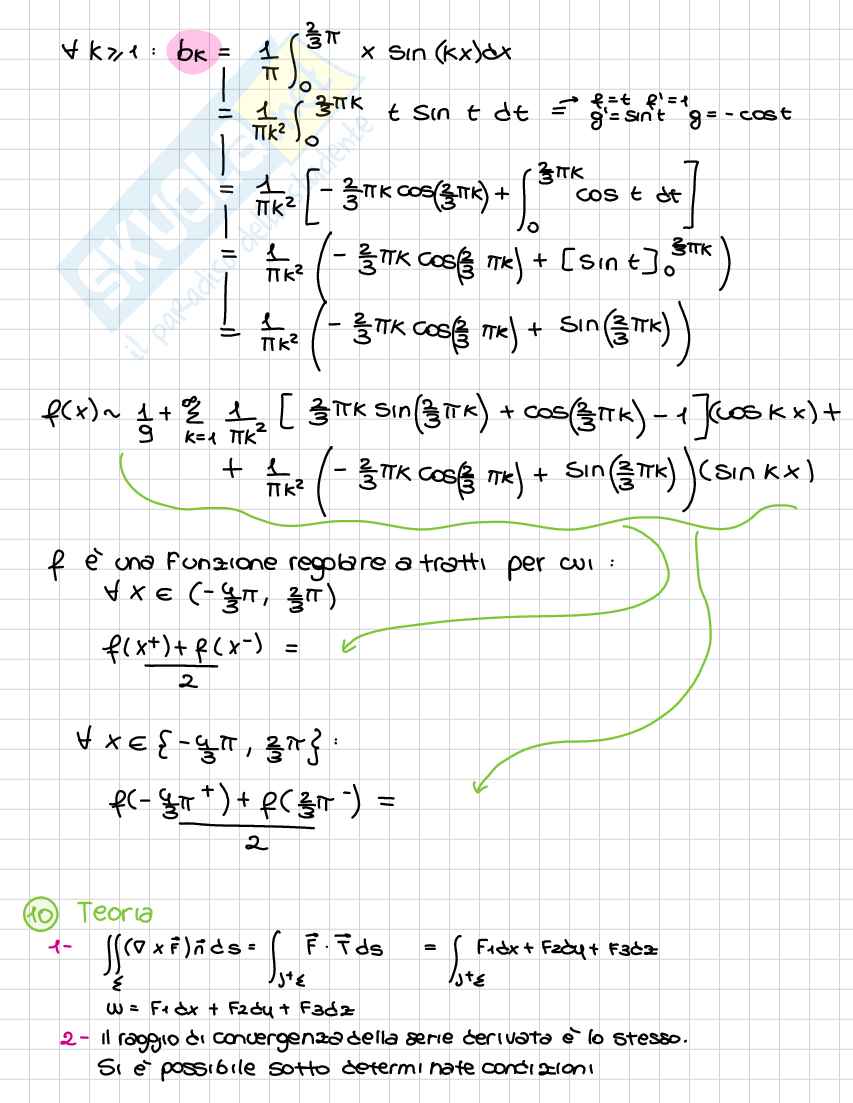 ∀ k ≥ 1 : bk = 1/π ∫₀^{2/3 π} x sin(kx)dx
= 1/πk² ∫₀^{2/3 πk} t sin t dt = → f=t f'=1 g'=sin t g=-cos t
= 1/πk² [ - 2/3 πk cos(2/3 πk) + ∫₀^{2/3 πk} cos t dt ]
= 1/πk² ( - 2/3 πk cos(2/3 πk) + [sin t]₀^{2/3 πk} )
= 1/πk² ( - 2/3 πk cos(2/3 πk) + sin(2/3 πk) )
f(x) ~ 1/9 + ∑_{k=1}^{∞} 1/πk² [ 2/3 πk sin(2/3 πk) + cos(2/3 πk) - 1 ](cos kx) +
+ 1/πk² ( - 2/3 πk cos(2/3 πk) + sin(2/3 πk) )(sin kx)
f è una funzione regolare a tratti per cui :
∀ x ∈ (-4/3 π, 2/3 π)
f(x⁺) + f(x⁻) / 2 =
∀ x ∈ {-4/3 π, 2/3 π} :
f(-4/3 π⁺) + f(2/3 π⁻) / 2 =
10 Teoria
1- ∬_Σ (∇ x F⃗) n⃗ ds = ∫_{J⁺Σ} F⃗ · T⃗ ds = ∫_{J⁺Σ} F1dx + F2dy + F3dz
ω = F1dx + F2dy + F3dz
2- il raggio di convergenza della serie derivata è lo stesso.
Si è possibile sotto determinate condizioni
SKUOLA.net
il paradiso dello studente